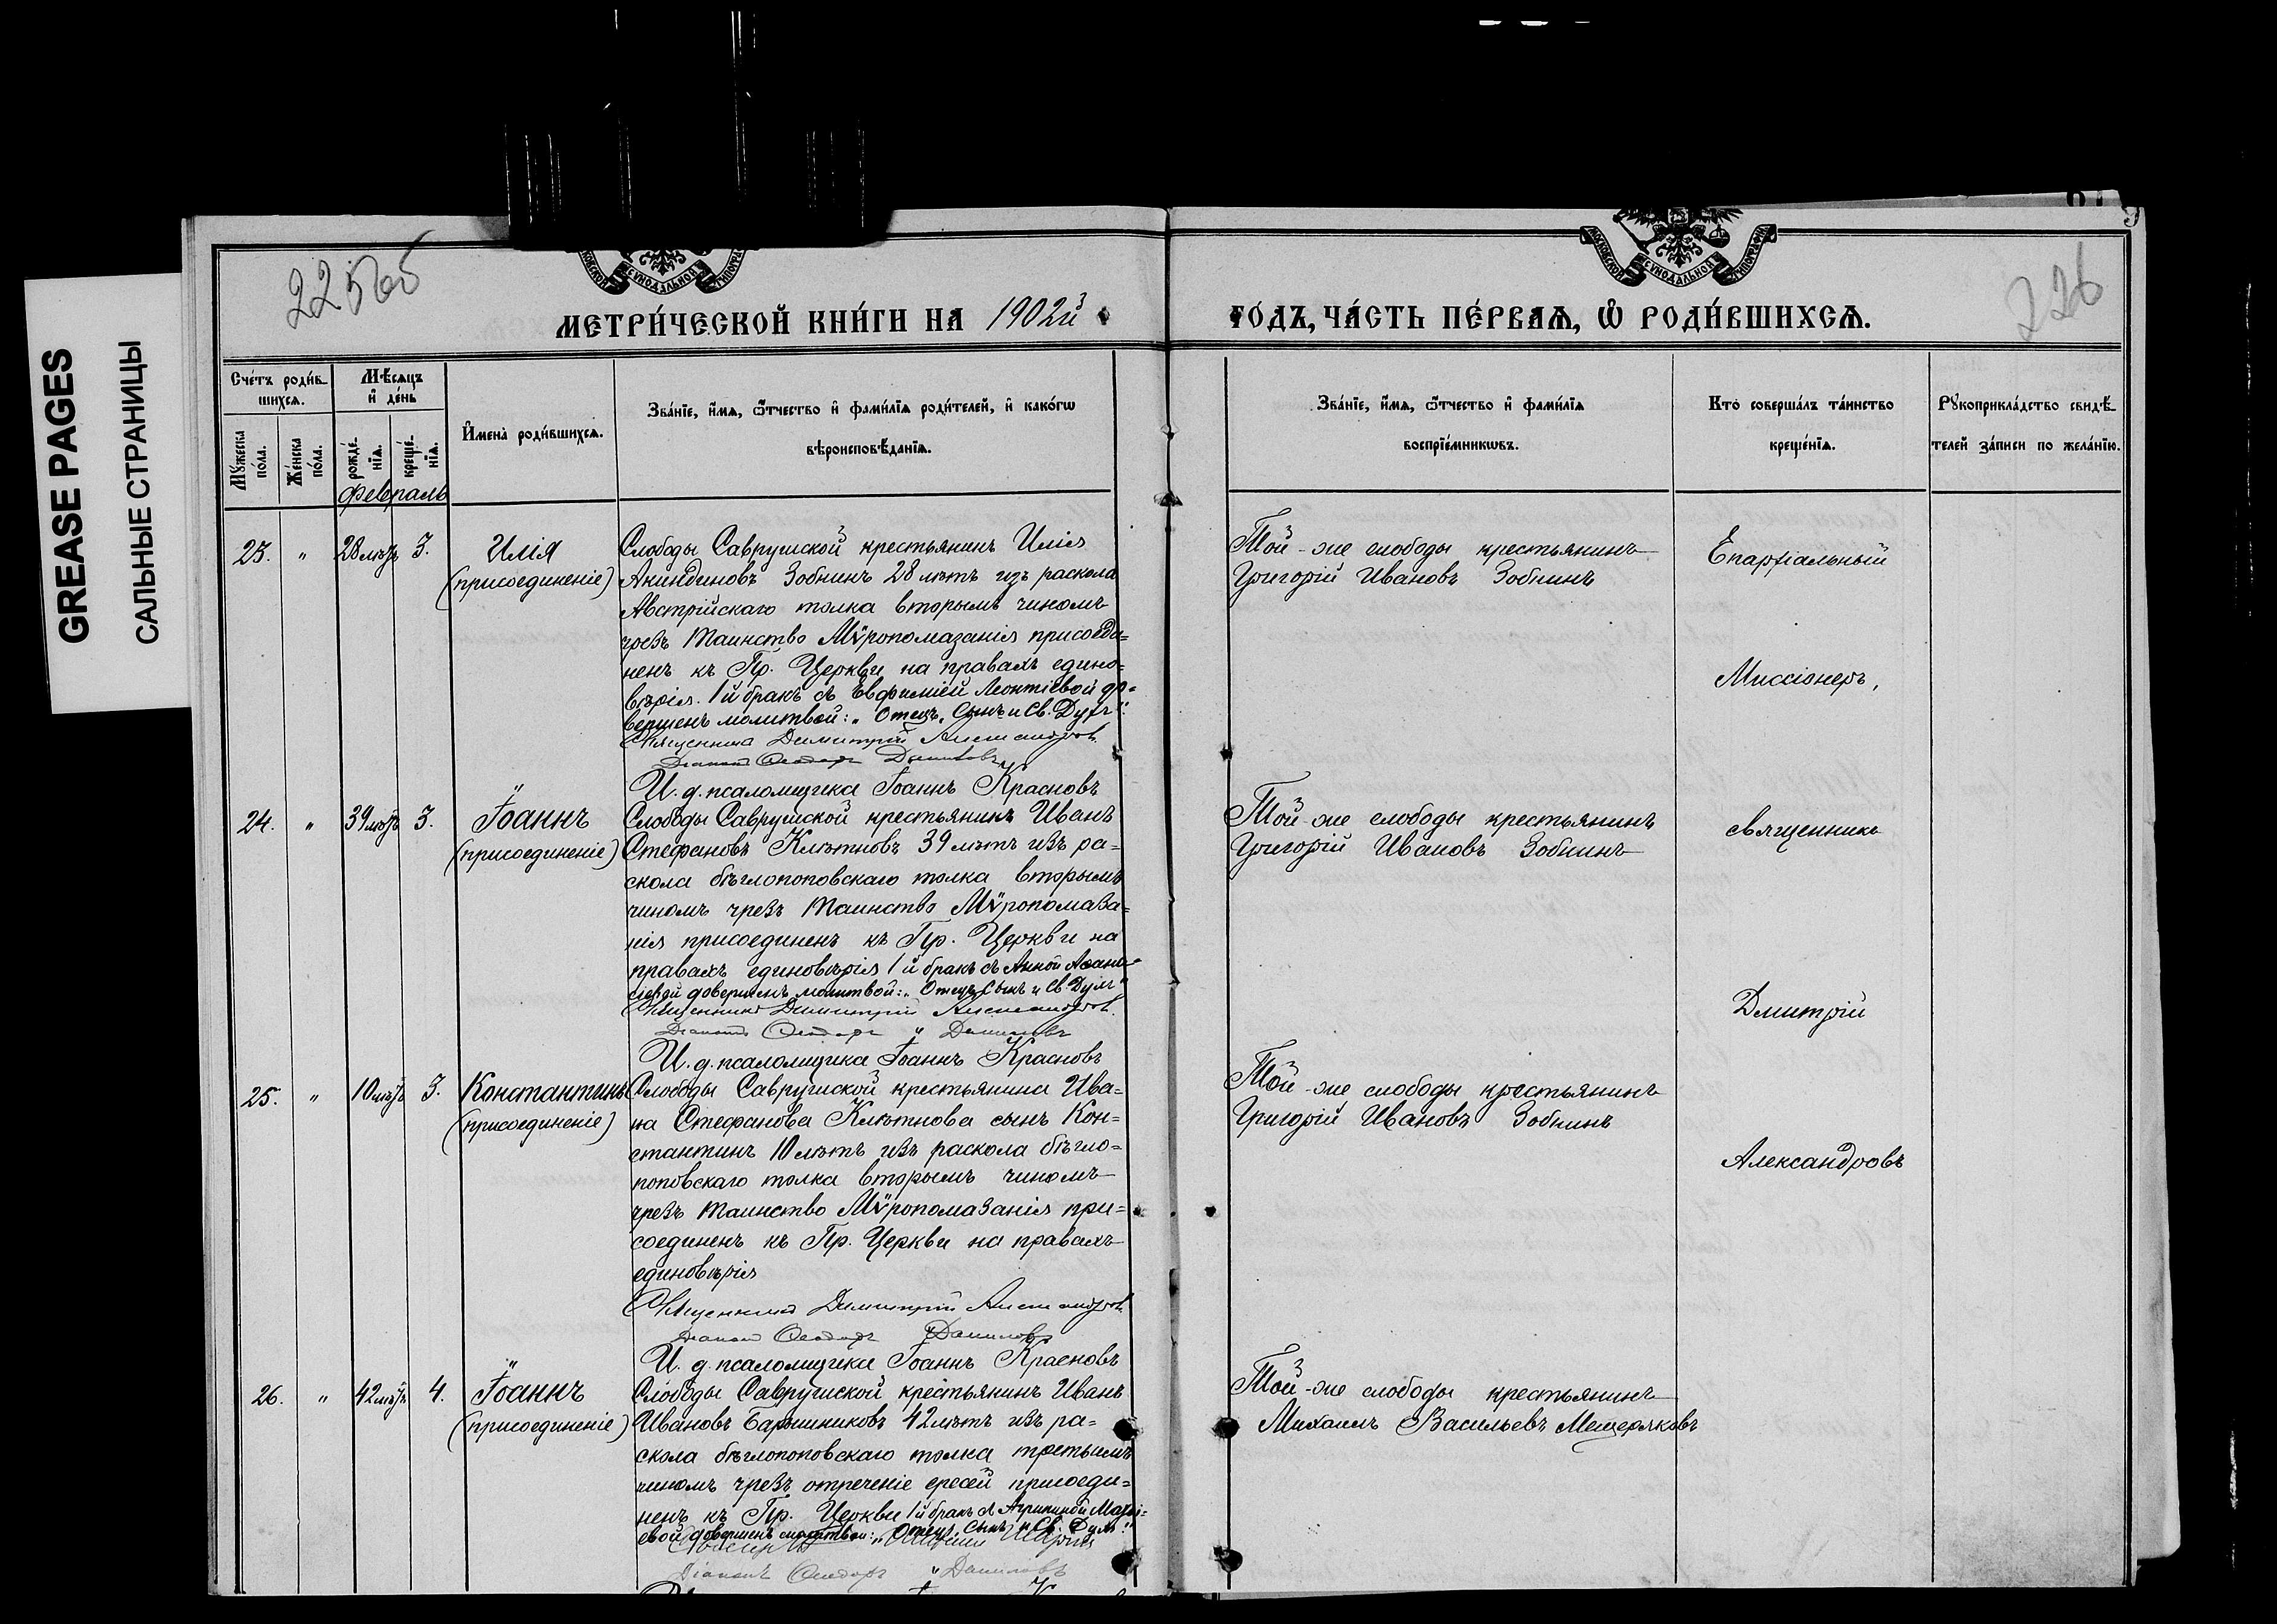 GREASE PAGES
САЛЬНЫЕ СТРАНИЦЫ
225об
226
МЕТРИ́ЧЕСКОЙ КНИ́ГИ НА 1902й
ГО́ДЪ, ЧА́СТЬ ПЕ́РВАѦ, Ѽ РОДИ́ВШИХСѦ.
Сче́тъ роди́в-
шихсѧ.
Мꙋжеска по́ла.
Же́нска по́ла.
Мѣ́сѧцъ
и҆ де́нь
рожде́-
нїѧ.
креще́-
нїѧ.
Февраль
И҆мена̀ роди́вшихсѧ.
Зва́нїе, и҆́мѧ, ѻ҆́тчество и҆ фами́лїѧ роди́телей, и҆ како́гѡ
вѣроисповѣ́данїѧ.
Зва́нїе, и҆́мѧ, ѻ҆́тчество и҆ фами́лїѧ
воспрїе́мникѡвъ.
Кто̀ соверша́лъ та́инство
креще́нїѧ.
Рꙋкоприкла́дство свидѣ́-
телей за́писи по жела́нїю.
23. " 28 лѣтъ 3. Илія
(присоединеніе)
Слободы Саврушской крестьянинъ Илія
Акиндиновъ Зобнинъ 28 лѣтъ изъ раскола
Австрійскаго толка вторымъ чиномъ
чрезъ Таинство Мѵропомазанія присоеди=
ненъ къ Пр. Церкви на правахъ едино=
вѣрія. 1й бракъ съ Евфиміей Леонтіевой до=
вершенъ молитвой: „Отецъ, Сынъ и Св. Духъ".
Священникъ Димитрій Александров.
Діаконъ Ѳеодоръ Даниловъ
И. д. псаломщика Іоаннъ Красновъ
Той-же слободы крестьянинъ
Григорій Ивановъ Зобнинъ
Епархіальный
Миссіонеръ,
24. " 39 лѣтъ 3. Іоаннъ
(присоединеніе)
Слободы Саврушской крестьянинъ Иванъ
Стефановъ Клѣтновъ 39 лѣтъ изъ ра=
скола бѣглопоповскаго толка вторымъ
чиномъ чрезъ Таинство Мѵропомаза=
нія присоединенъ къ Пр. Церкви на
правахъ единовѣрія 1й бракъ съ Анной Аѳана-
сіевой довершенъ молитвой: „Отецъ, Сынъ и Св. Духъ"
Священникъ Димитрій Александров.
Діаконъ Ѳеодоръ Даниловъ
И. д. псаломщика Іоаннъ Красновъ
Той-же слободы крестьянинъ
Григорій Ивановъ Зобнинъ
священникъ
Дмитрій
25. " 10 лѣтъ 3. Константинъ
(присоединеніе)
Слободы Саврушской крестьянина Ива=
на Стефанова Клѣтнова сынъ Кон=
стантинъ 10 лѣтъ изъ раскола бѣгло=
поповскаго толка вторымъ чиномъ
чрезъ Таинство Мѵропомазанія при=
соединенъ къ Пр. Церкви на правахъ
единовѣрія
Священникъ Димитрій Александров.
Діаконъ Ѳеодоръ Даниловъ
И. д. псаломщика Іоаннъ Красновъ
Той-же слободы крестьянинъ
Григорій Ивановъ Зобнинъ
Александровъ
26. " 42 лѣтъ 4. Іоаннъ
(присоединеніе)
Слободы Саврушской крестьянинъ Иванъ
Ивановъ Барышниковъ 42 лѣтъ изъ ра=
скола бѣглопоповскаго толка третьимъ
чиномъ чрезъ отреченіе ересей присоеди=
ненъ къ Пр. Церкви 1й бракъ съ Агрипиной
евой довершенъ молитвой: „Отецъ, Сынъ и Св. Духъ"
Діаконъ Ѳеодоръ Даниловъ
Той-же слободы крестьянинъ
Михаилъ Васильевъ Мещеряковъ